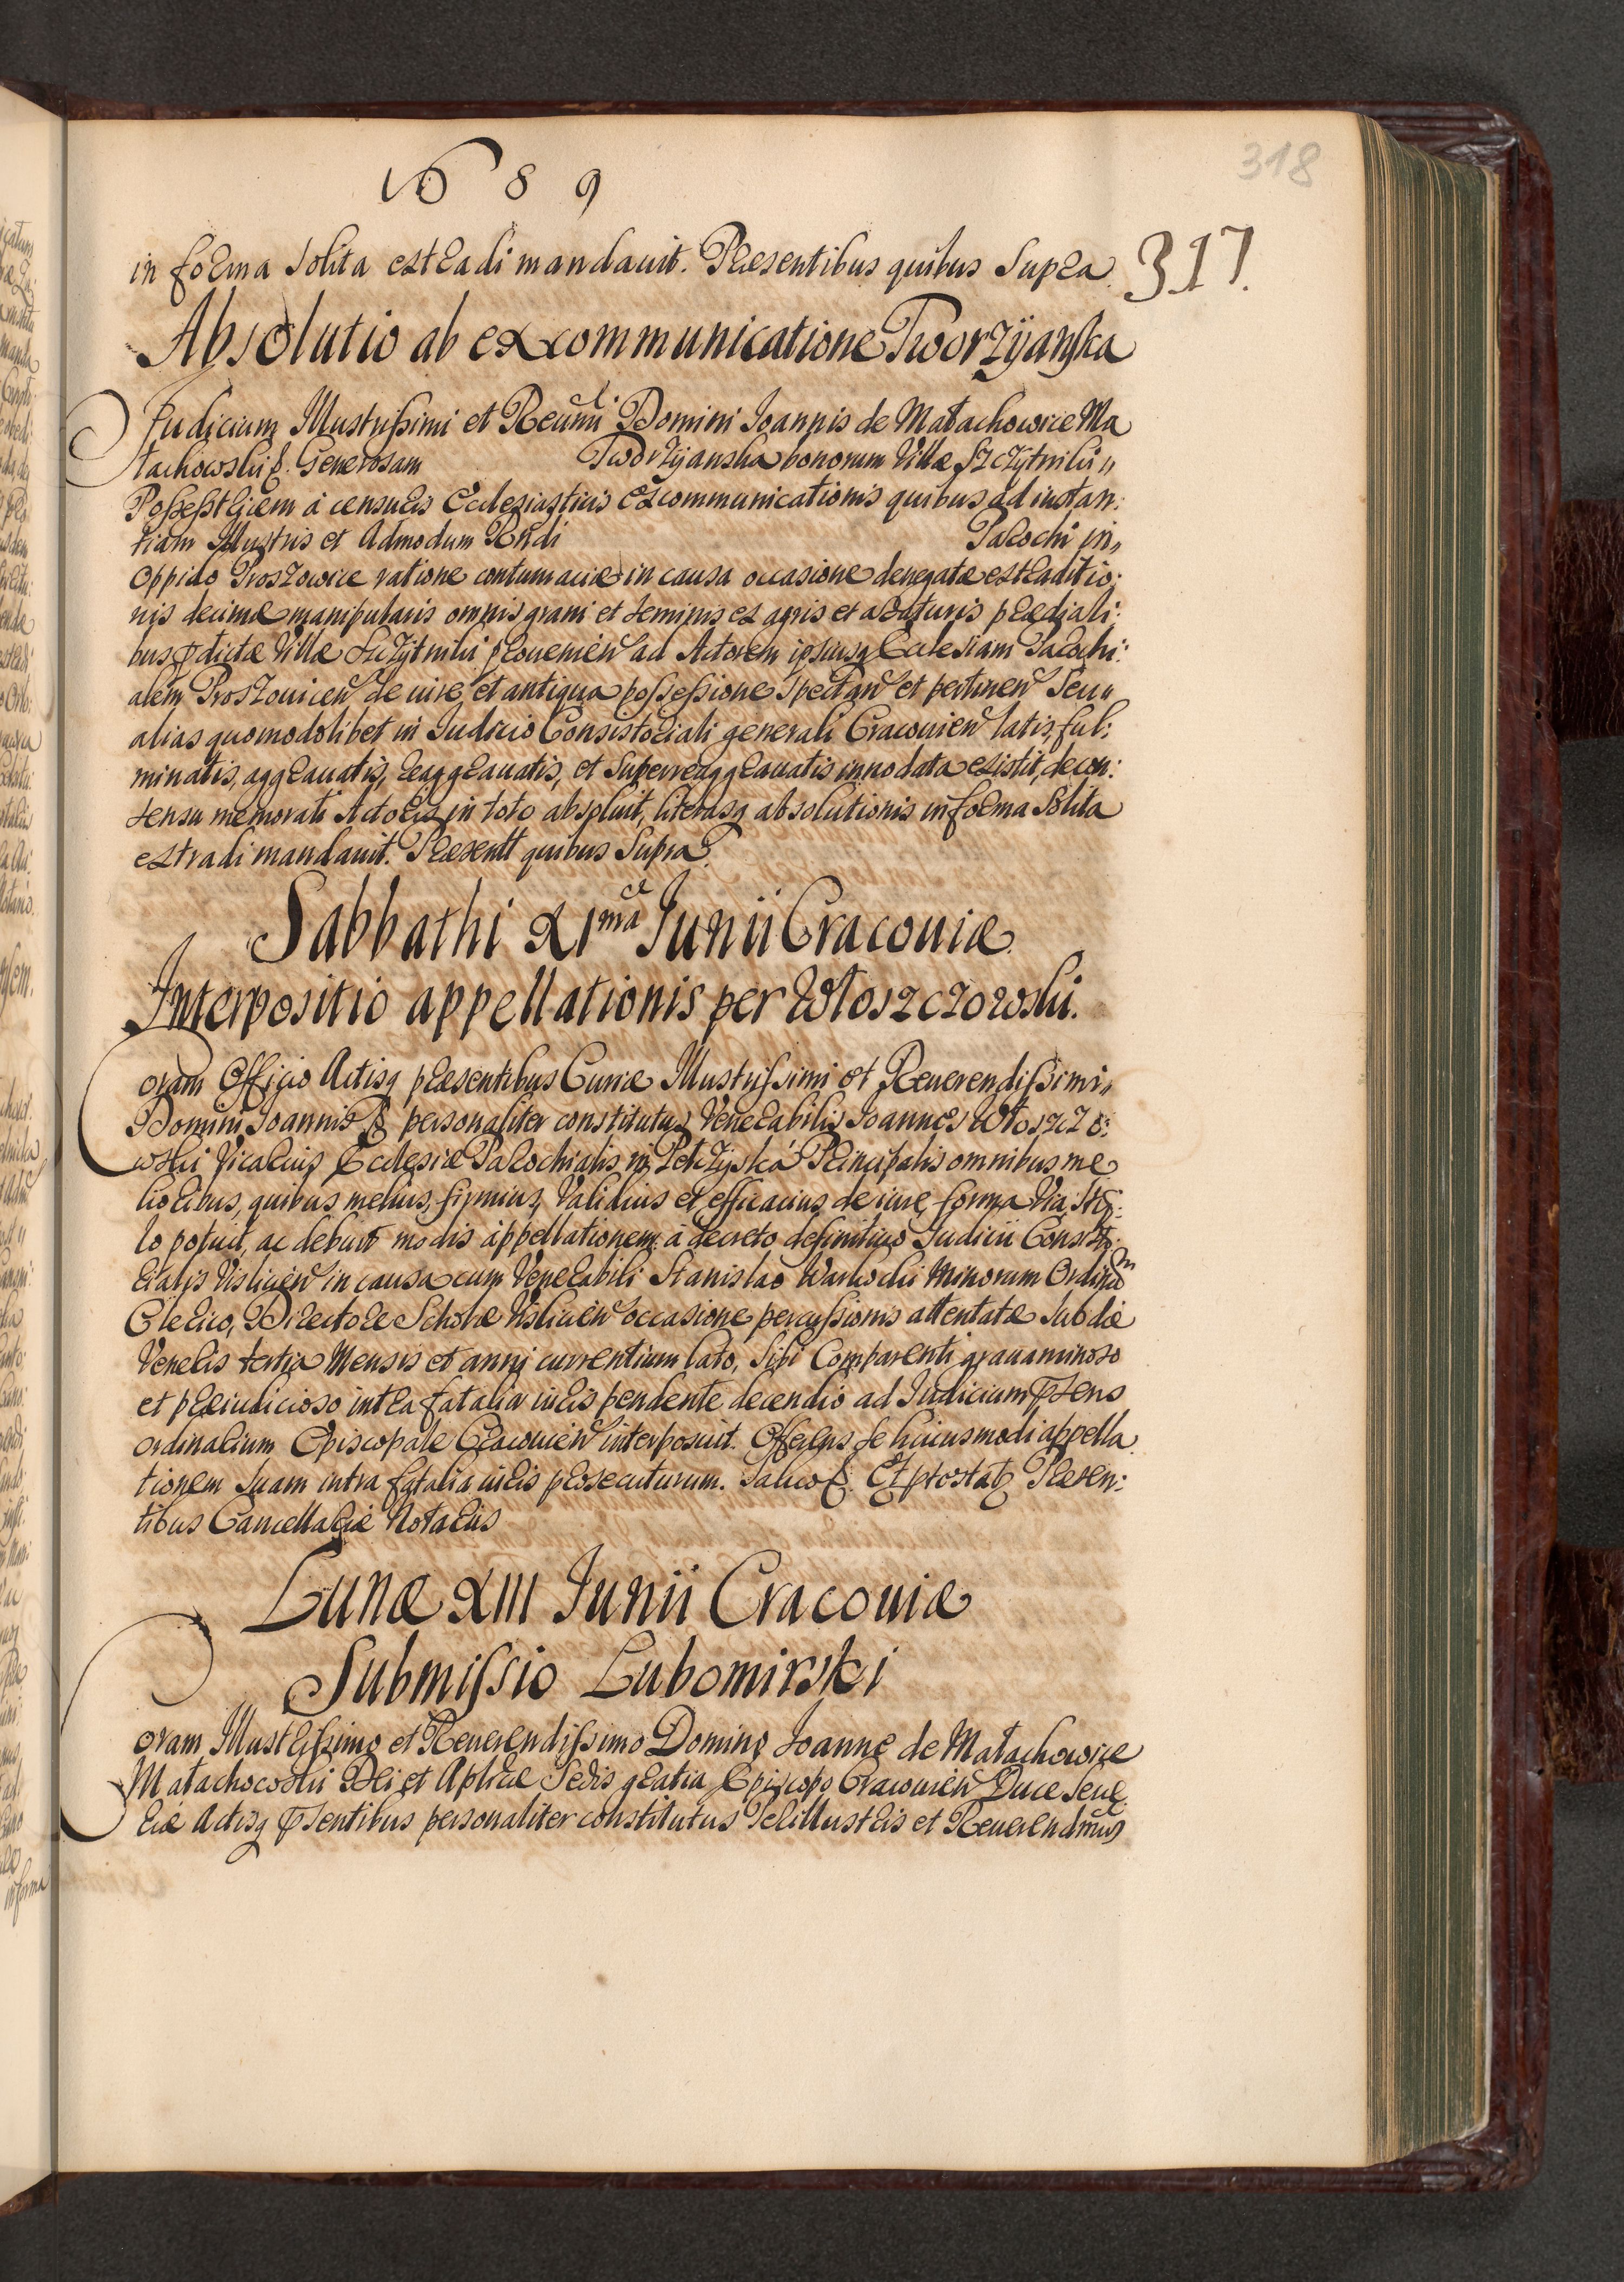 1689
318
in forma solita extradi mandauit. Præsentibus quibus Supra.
317.
Absolutio ab excommunicatione Tworzÿanska
Judicium Illustrissimi et Reundi Domini Joannis de Małachowice Ma
łachowski &. Generosam Tworzÿanska bonorum Villæ Szczÿtniki,,
Possesstricem à censuris Ecclesiasticis excommunicationis quibus ad instan:
tiam Illustris et Admodum Rndi Parochi in,,
Oppido Proszowice ratione contumaciæ in causa occasione denegatæ extraditio:
nis decimæ manipularis omnis grani et seminis ex agris et araturis prædiali:
bus pdictæ Villæ Szczÿtniki prouenien ad Actorem ipsiusq Ecclesiam Parochi:
alem Proszouicen de iure et antiqua possessione spectan et pertinen Seu,,
alias quomodolibet in Judicio Consistoriali generali Cracouien latis, ful:
minatis, aggrauatis, reaggrauatis, et Superreaggrauatis innodata existit, de con:
sensu memorati Actoris in toto absoluit, literasq absolutionis in forma Solita
extradi mandauit. Præsentt quibus Supra.
Sabbathi XIma Junii Cracouiæ
Interpositio appellationis per Włoszczowski.
Coram Officio Actisq præsentibus Curiæ Illustrissimi et Reuerendissimi,,
Domini Joannis & personaliter constitutus Venerabilis Joannes Włoszczo:
wski Vicarius Ecclesiæ Parochialis in Pełczÿska Principalis omnibus me
lioribus, quibus melius, firmius, Validius et efficacius de iure, forma Via, Stÿ:
lo potuit, ac debuit modis appellationem à decreto definitiuo Judicii Consisto:
rialis Vislicien in causa cum Venerabili Stanislao Warkocki Minorum Ordinum
Clerico, Directore Scholæ Vislicien occasione percussionis attentatæ sub die
Veneris tertia Mensis et anni currentium lato, Sibi Comparenti grauaminoso
et præiudicioso intra fatalia iuris pendente decendio ad Judicium psens
ordinarium Episcopale Cracouien interposuit. Offerens se huiusmodi appella
tionem suam intra fatalia iuris prosecuturum. Saluo &. Et protestatq Præsen:
tibus Cancellariæ Notariis
Lunæ XIII Junii Cracouiæ
Submissio Lubomirski
Coram Illustrissimo et Reuerendissimo Domino Joanne de Małachowice
Małachowski Dei et Aplicæ Sedis gratia Episcopo Cracouien Duce Seue
riæ Actisq psentibus personaliter constitutus Perillustris et Reuerendmus